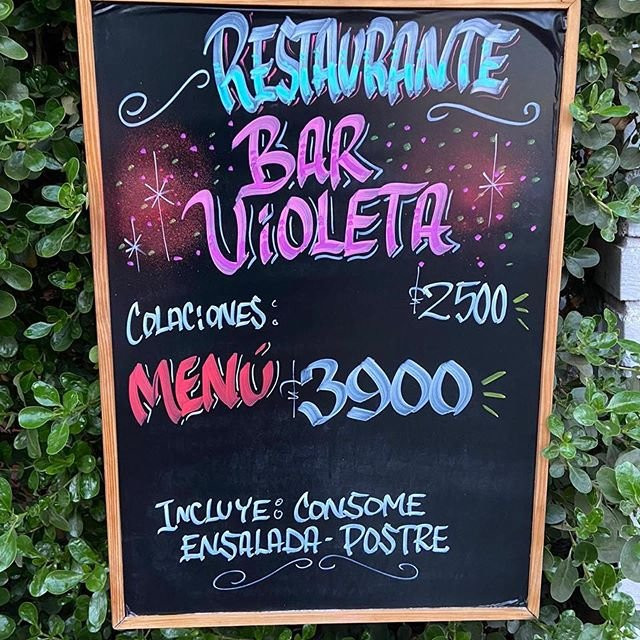 RESTAURANTE
BAR
ViOLETA
COLACiONES: $2500
MENÚ $3900
INCLUYE: CONSOME
ENSALADA - POSTRE